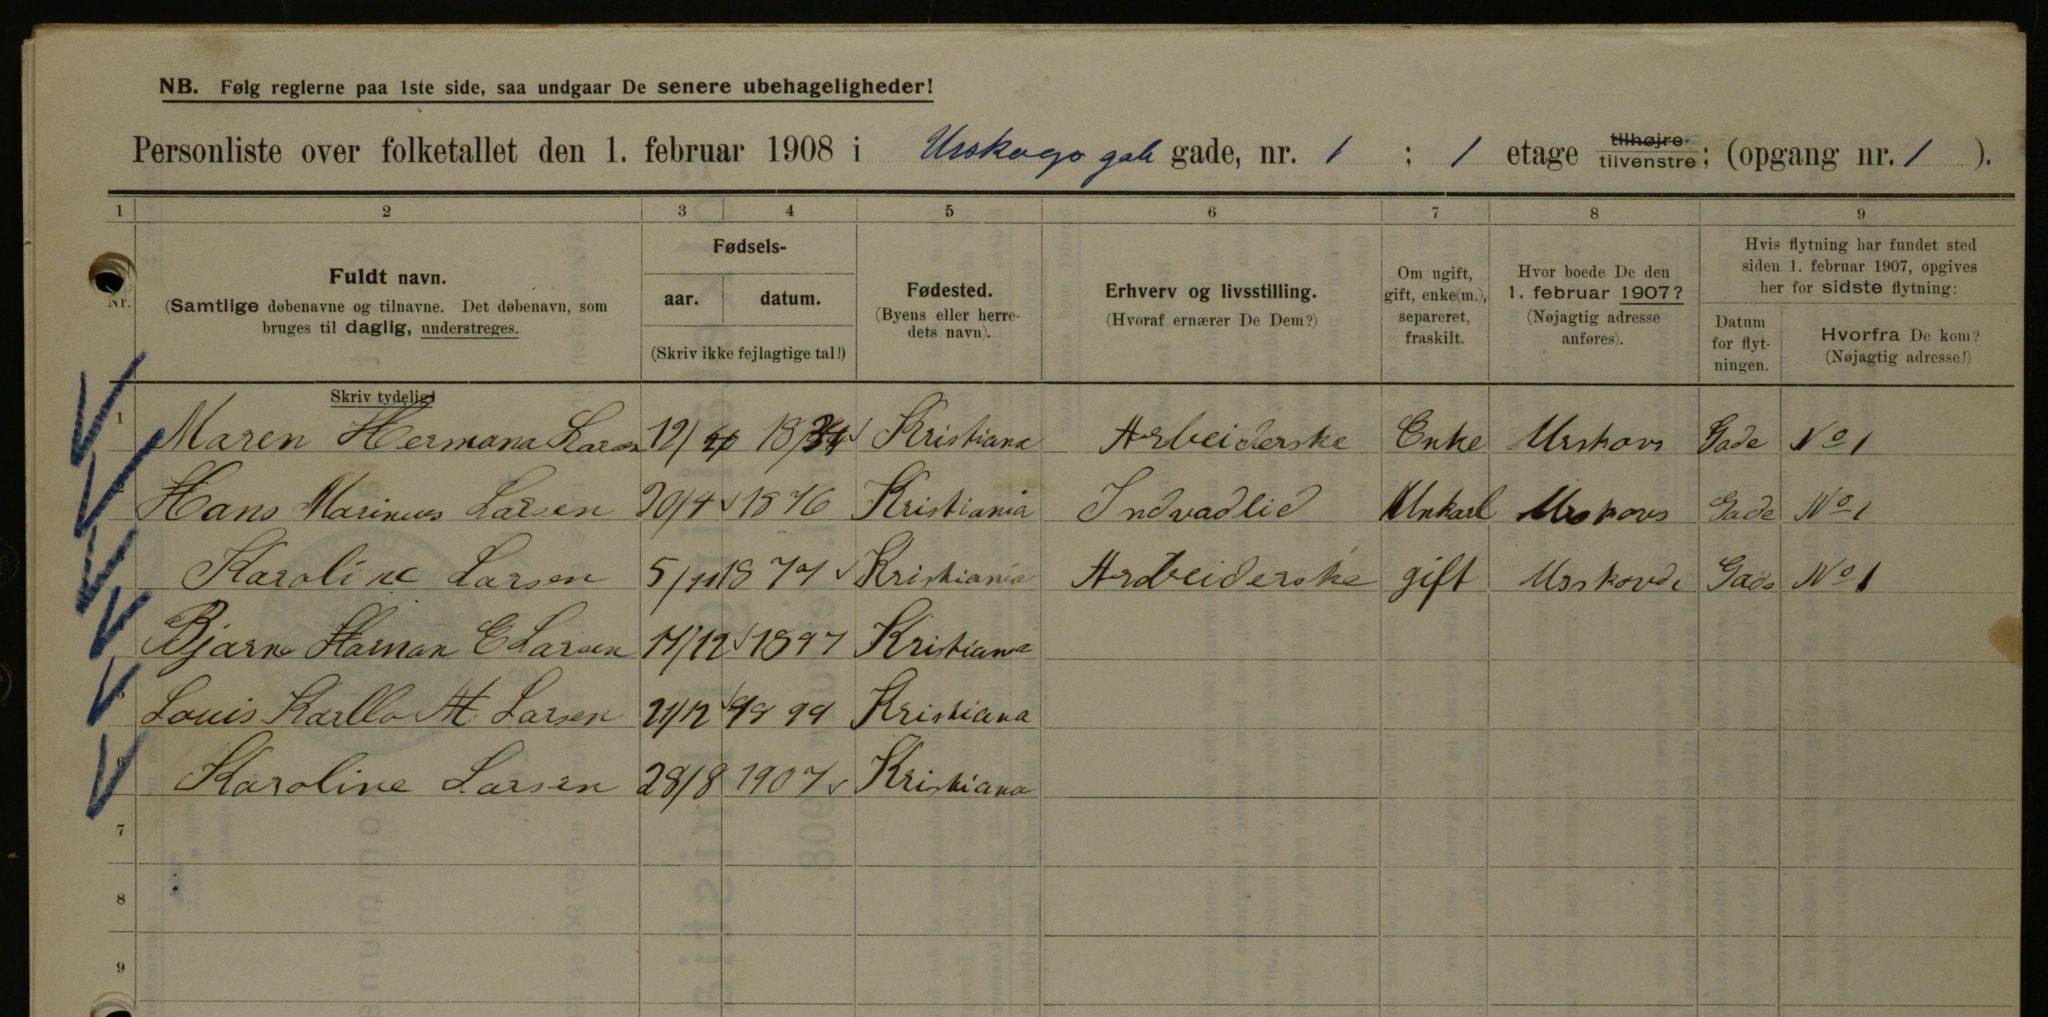 NB. Følg reglerne paa 1ste side, saa undgaar De senere ubehageligheder!
Personliste over folketallet den 1. februar 1908 i Urskogs gah gade, nr. 1 ; 1 etage tilhøjre. tilvenstre ; (opgang nr. 1 ).
1 2 3 4 5 6 7 8 9
Nr.
Fuldt navn.
(Samtlige døbenavne og tilnavne. Det døbenavn, som
bruges til daglig, understreges.
Fødsels-
aar. datum.
(Skriv ikke fejlagtige tal!)
Fødested.
(Byens eller herre-
dets navn).
Erhverv og livsstilling.
(Hvoraf ernærer De Dem?)
Om ugift,
gift, enke(m.),
separeret,
fraskilt.
Hvor boede De den
1. februar 1907?
(Nøjagtig adresse
anføres).
Hvis flytning har fundet sted
siden 1. februar 1907, opgives
her for sidste flytning:
Datum
for flyt-
ningen.
Hvorfra De kom?
(Nøjagtig adresse!)
Skriv tydelig!
1 Maren Hermana Larsen 12/ 18 Kristiana Arbeiderske Enke Urskovs Gade No 1
2 Hans Marinus Larsen 20/4 1876 Kristiania Indvadlid Unkarl Urskovs Gade No 1
Karoline Larsen 5/11 1877 Kristiania Ardbeiderske gift Urskovde Gade No 1
Bjarne Harman E Larsen 17/12 1897 Kristiana
5 Louis Karllo M Larsen 21/12 1899 Kristiana
6 Karoline Larsen 28/8 1907 Kristiana
7
8
9